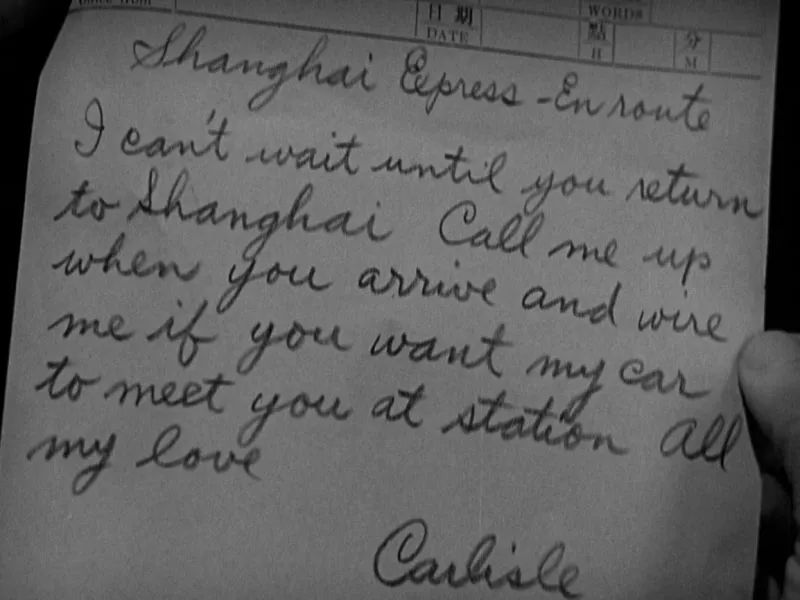 日期 WORDS
DATE 點 分
H M
Shanghai Express - En route
I can't wait until you return
to Shanghai Call me up
when you arrive and wire
me if you want my car
to meet you at station All
my love
Carlisle